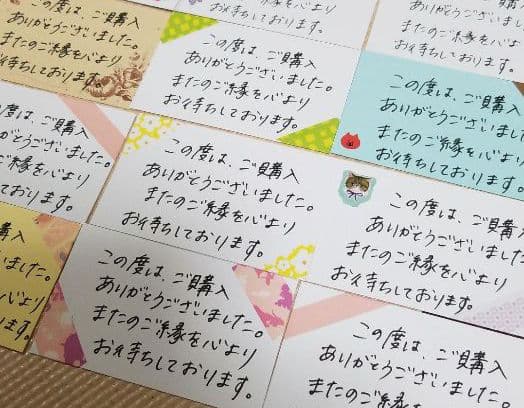 ご購入
ありがとうございました。
またのご縁を心より
お待ちしております。
この度は、ご購入
ありがとうございました。
またのご縁を心より
お待ちしております。
またのご縁を心よ
お待ちしており
この度は、ご購入
ありがとうございました
またのご縁を心より
お待ちしております。
は、ご購入
とうございました。
のご縁を心より
ちしております。
この度は、ご購入
ありがとうございました。
またのご縁を心より
お待ちしております。
この度は、ご購入
ありがとうございました
またのご縁を心より
お待ちしております。
購入
いました。
心より
ます。
この度は、ご購入
ありがとうございました。
またのご縁を心より
お待ちしております。
この度は、ご購入
ありがとうございました
またのご縁を心より